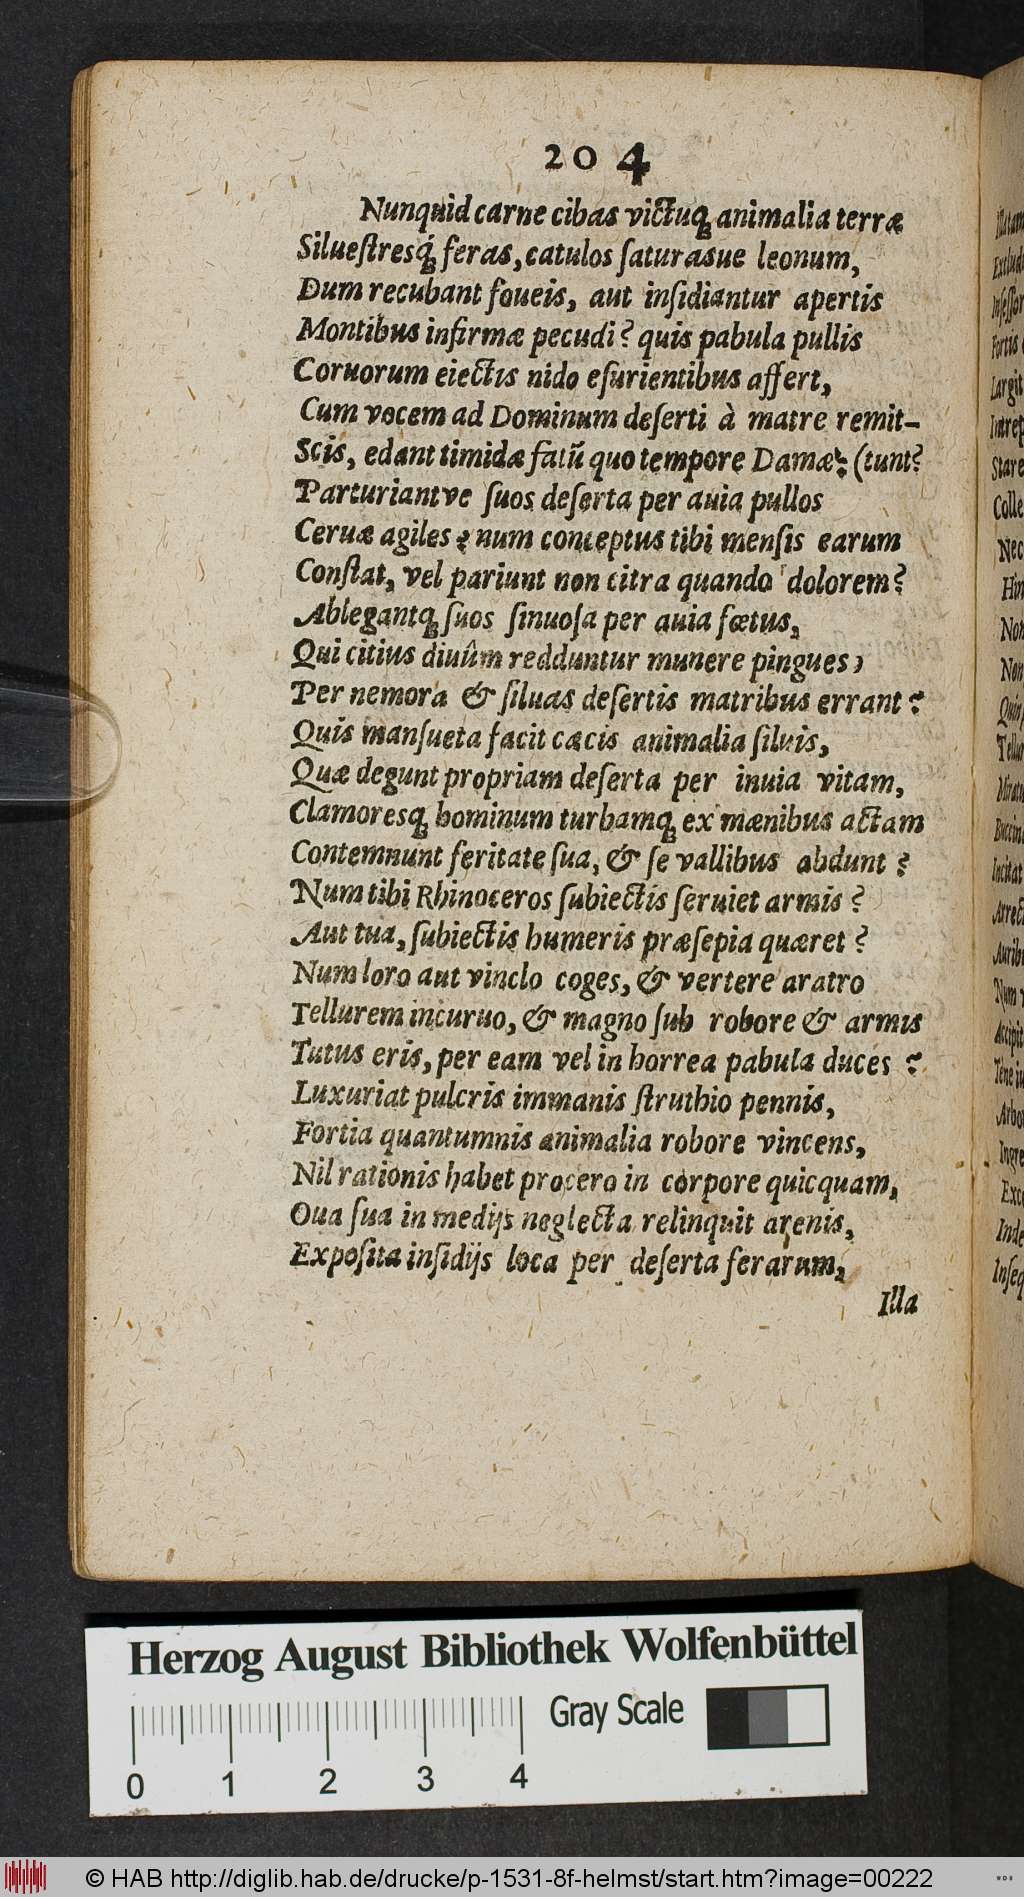 204
Nunquid carne cibas victuq; animalia terræ
Silueſtresq́; feras, catulos ſaturasue leonum,
Dum recubant foueis, aut inſidiantur apertis
Montibus infirmæ pecudi? quis pabula pullis
Coruorum eiectis nido eſurientibus affert,
Cum vocem ad Dominum deſerti à matre remit-
Scis, edant timidæ fatũ quo tempore Damæ: (tunt?
Parturiantve ſuos deſerta per auia pullos
Ceruæ agiles? num conceptus tibi menſis earum
Conſtat, vel pariunt non citra quando dolorem?
Ablegantq; ſuos ſinuoſa per auia fœtus,
Qui citius diuûm redduntur munere pingues,
Per nemora & ſiluas deſertis matribus errant?
Quis manſueta facit cæcis animalia ſiluis,
Quæ degunt propriam deſerta per inuia vitam,
Clamoresq; hominum turbamq; ex mænibus actam
Contemnunt feritate ſua, & ſe vallibus abdunt?
Num tibi Rhinoceros ſubiectis ſeruiet armis?
Aut tua, ſubiectis humeris præſepia quæret?
Num loro aut vinclo coges, & vertere aratro
Tellurem incuruo, & magno ſub robore & armis
Tutus eris, per eam vel in horrea pabula duces?
Luxuriat pulcris immanis ſtruthio pennis,
Fortia quantumnis animalia robore vincens,
Nil rationis habet procero in corpore quicquam,
Oua ſua in medijs neglecta relinquit arenis,
Expoſita inſidijs loca per deſerta ferarum,
Illa
Herzog August Bibliothek Wolfenbüttel
Gray Scale
0 1 2 3 4
© HAB http://diglib.hab.de/drucke/p-1531-8f-helmst/start.htm?image=00222